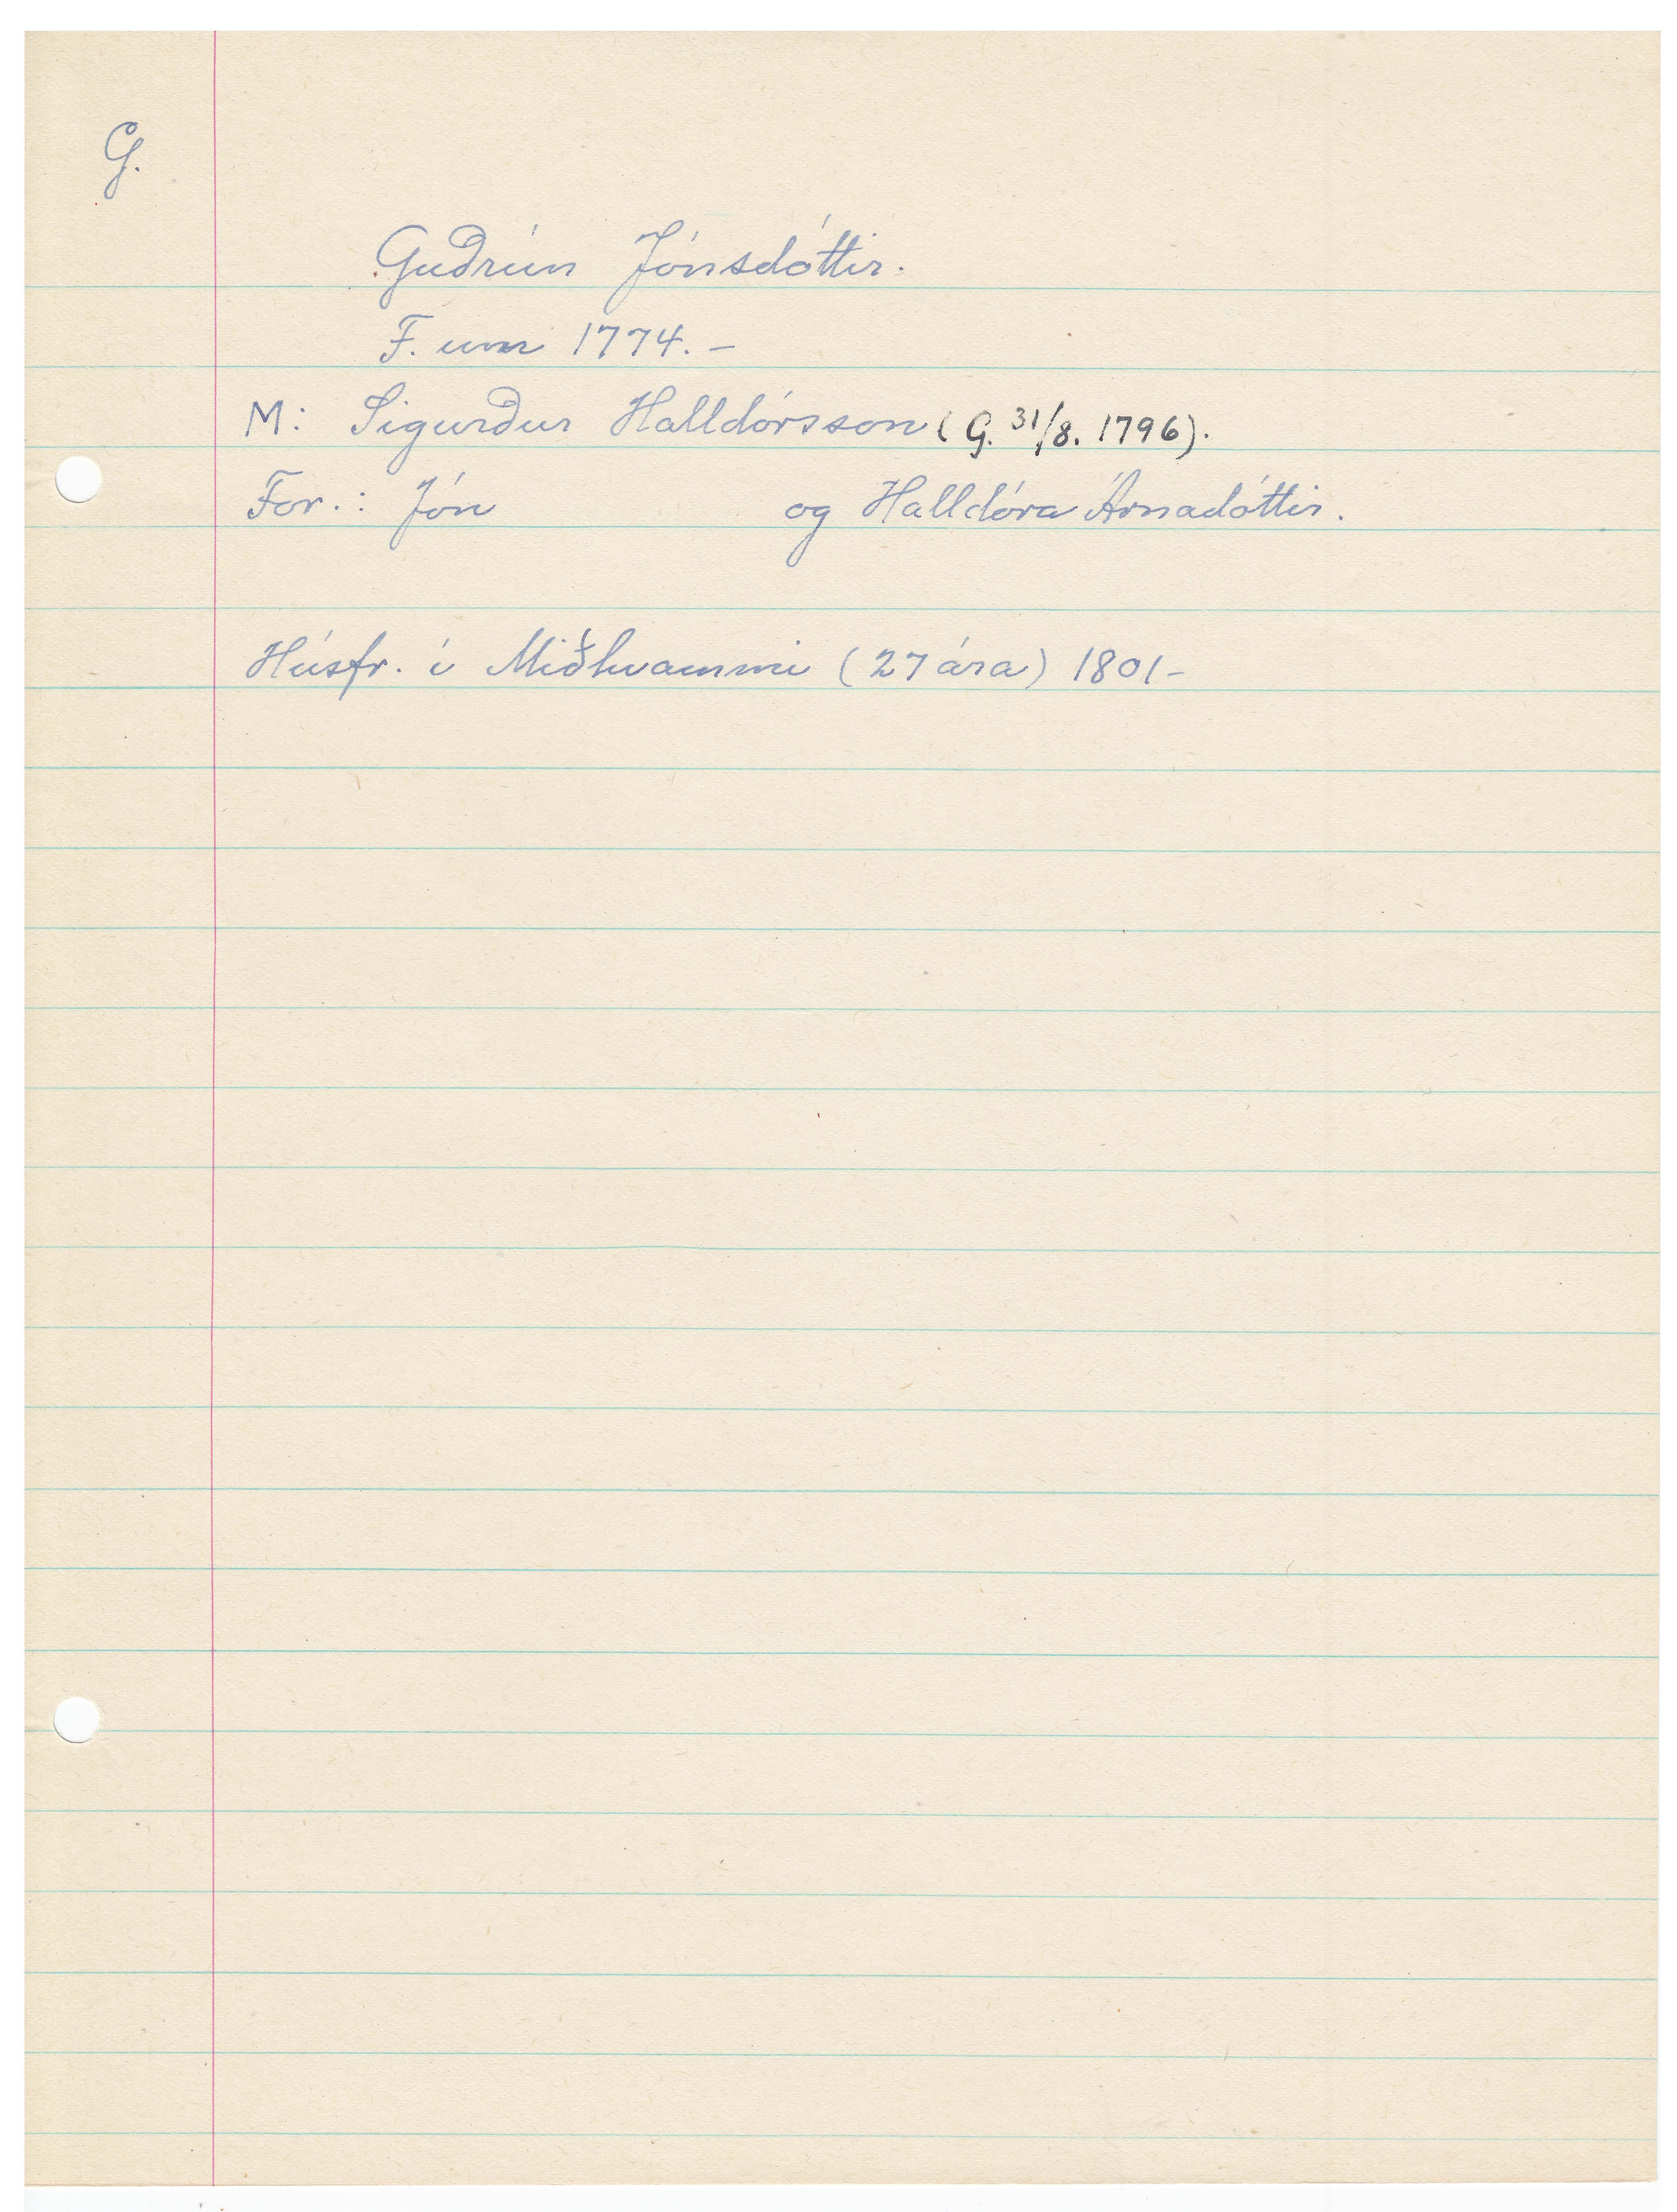 G.
Guðrún Jónsdóttir.
F. um 1774. -
M: Sigurður Halldórsson (G. 31/8. 1796).
For.: Jón og Halldóra Árnadóttir.
Húsfr. í Miðhvammi (27 ára) 1801-